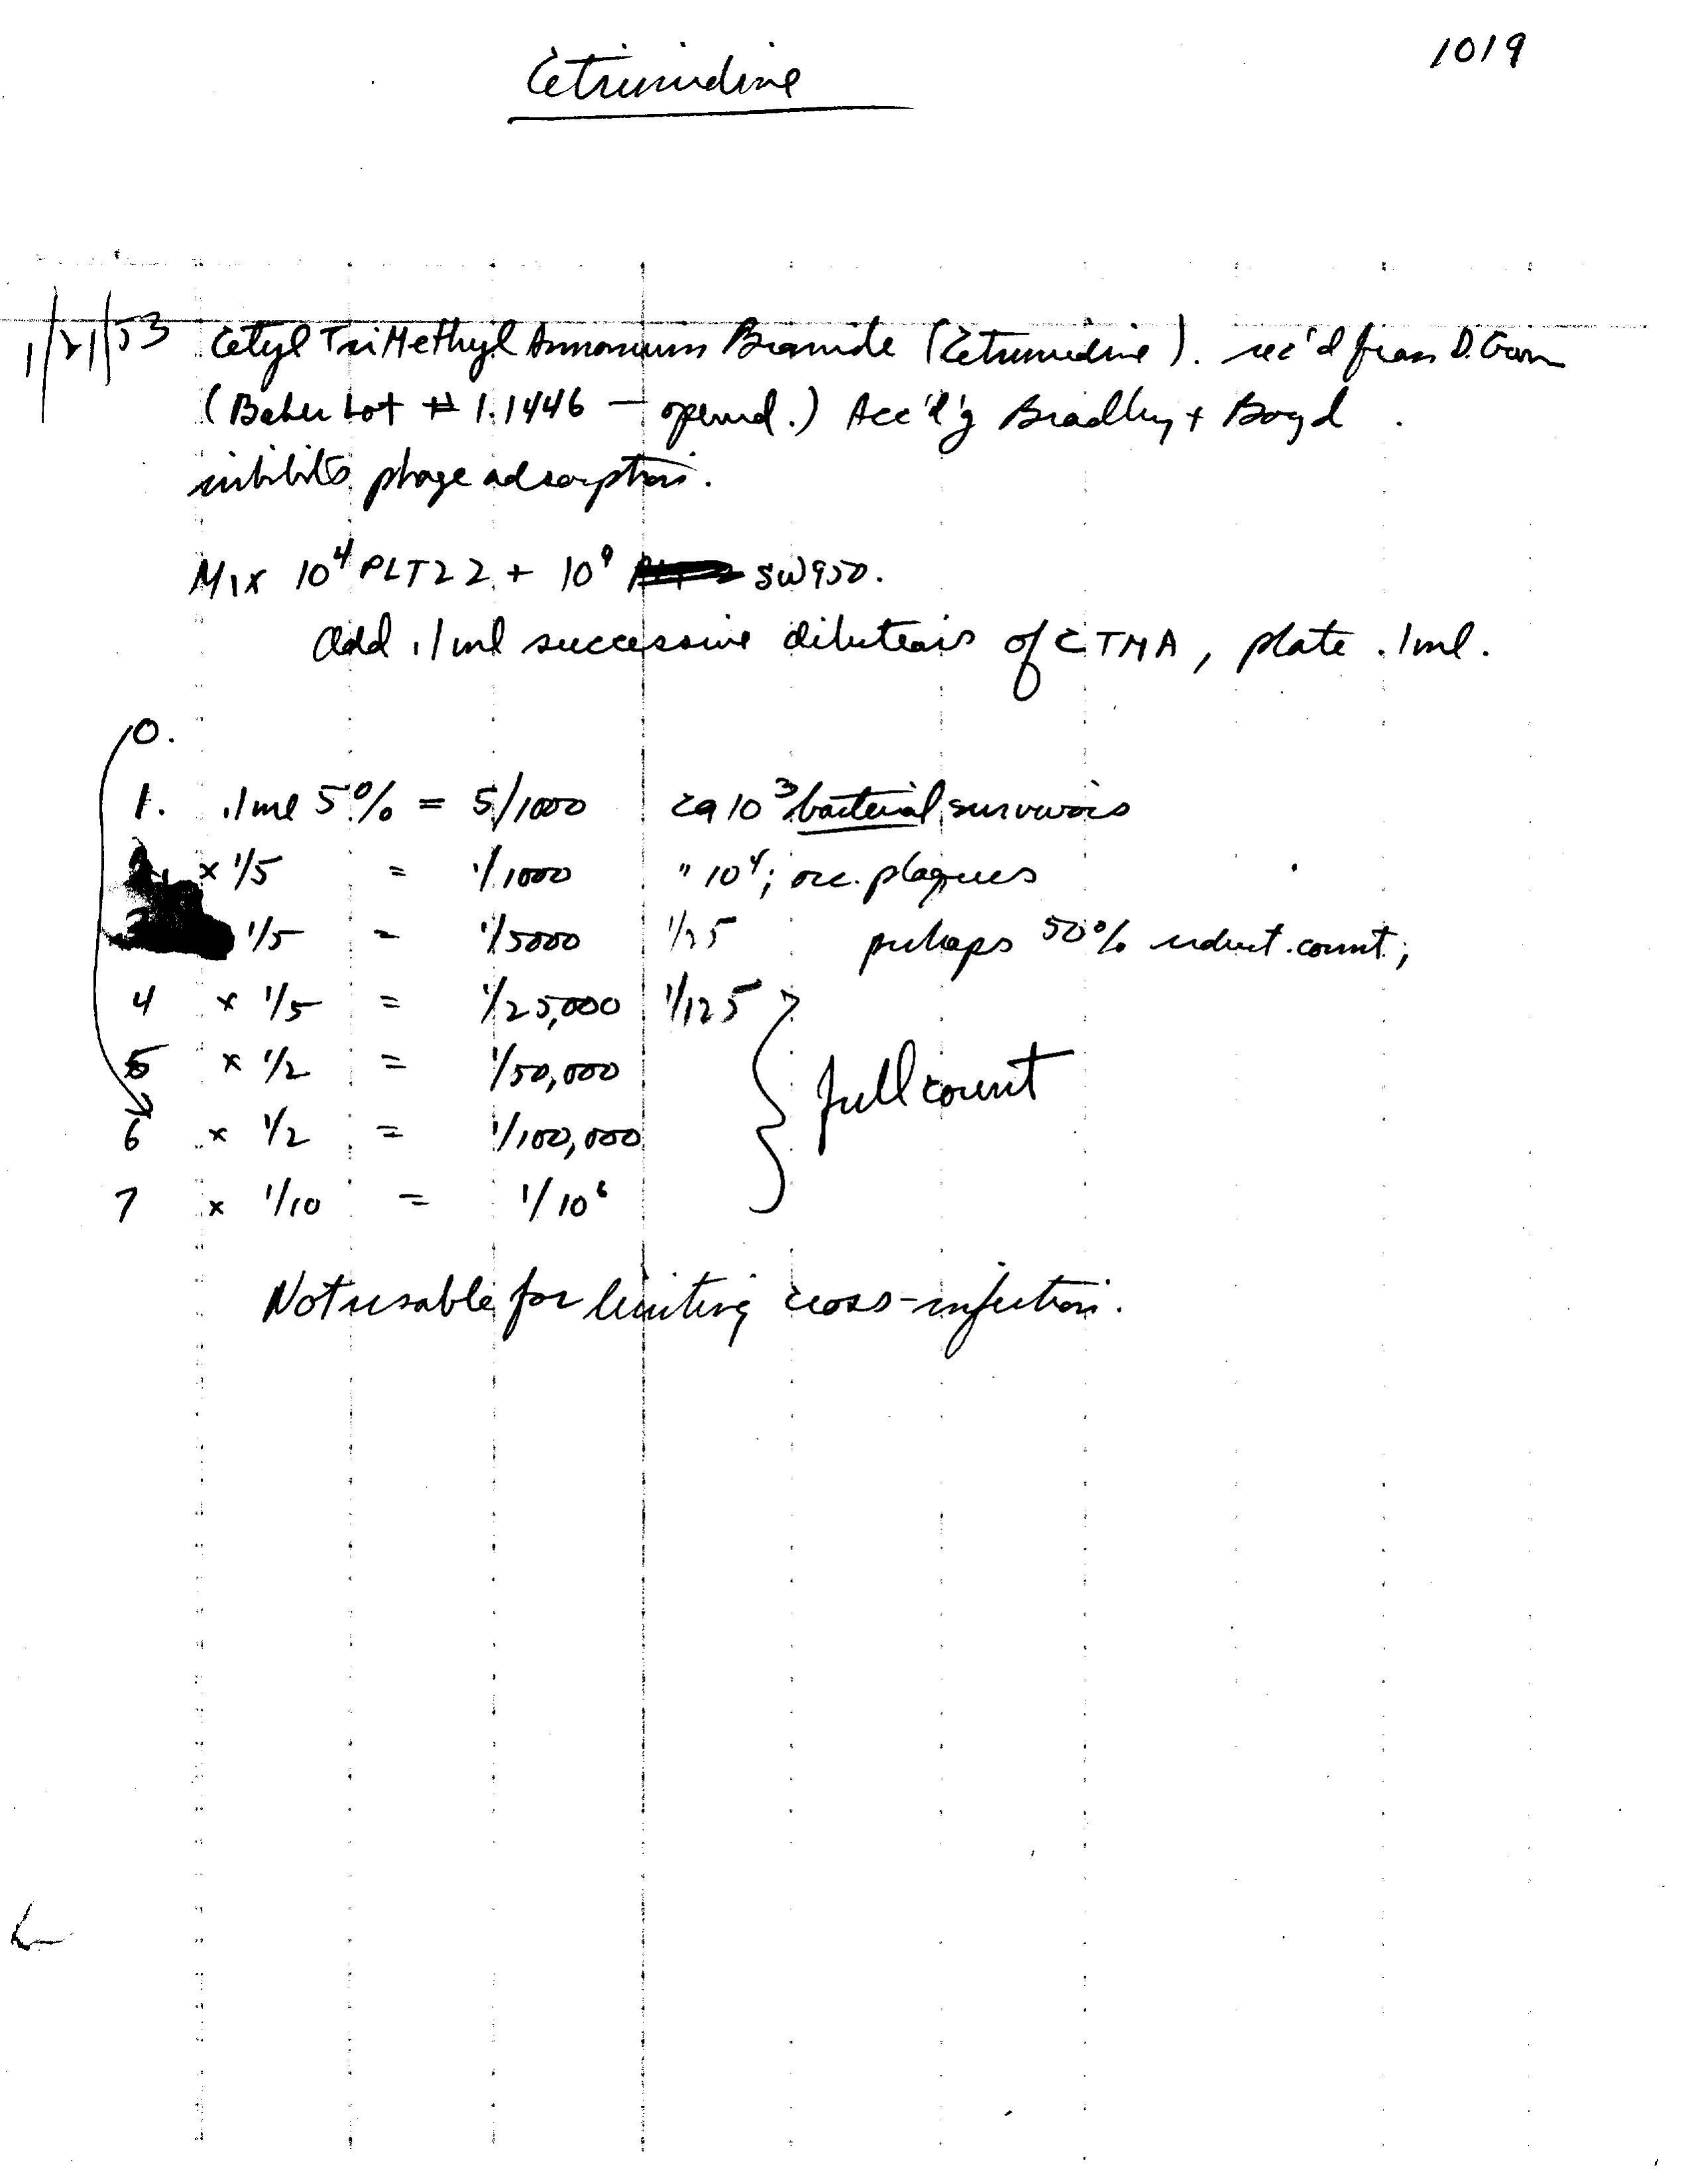 1019
Cetrimidine
1/21/53 Cetyl TriMethyl Ammonium Bromide (Cetrimidine). rec'd from D.
(Baker Lot # 1.1446 — opened.) Acc'd'g Bradley + Boyd
inhibits phage adsorption.
Mix 10⁴ PLT22 + 10⁹ SW950.
Add .1ml successive dilutions of CTMA, plate .1ml.
0.
1. .1ml 5% = 5/1000 ca 10³ bacterial survivors
2. x 1/5 = 1/1000 " 10⁴; occ. plaques
1/5 = 1/5000 1/25 perhaps 50% reduct. count;
4 x 1/5 = 1/25,000 1/125
5 x 1/2 = 1/50,000
full count
6 x 1/2 = 1/100,000
7 x 1/10 = 1/10⁶
Not usable for limiting cross-infection.